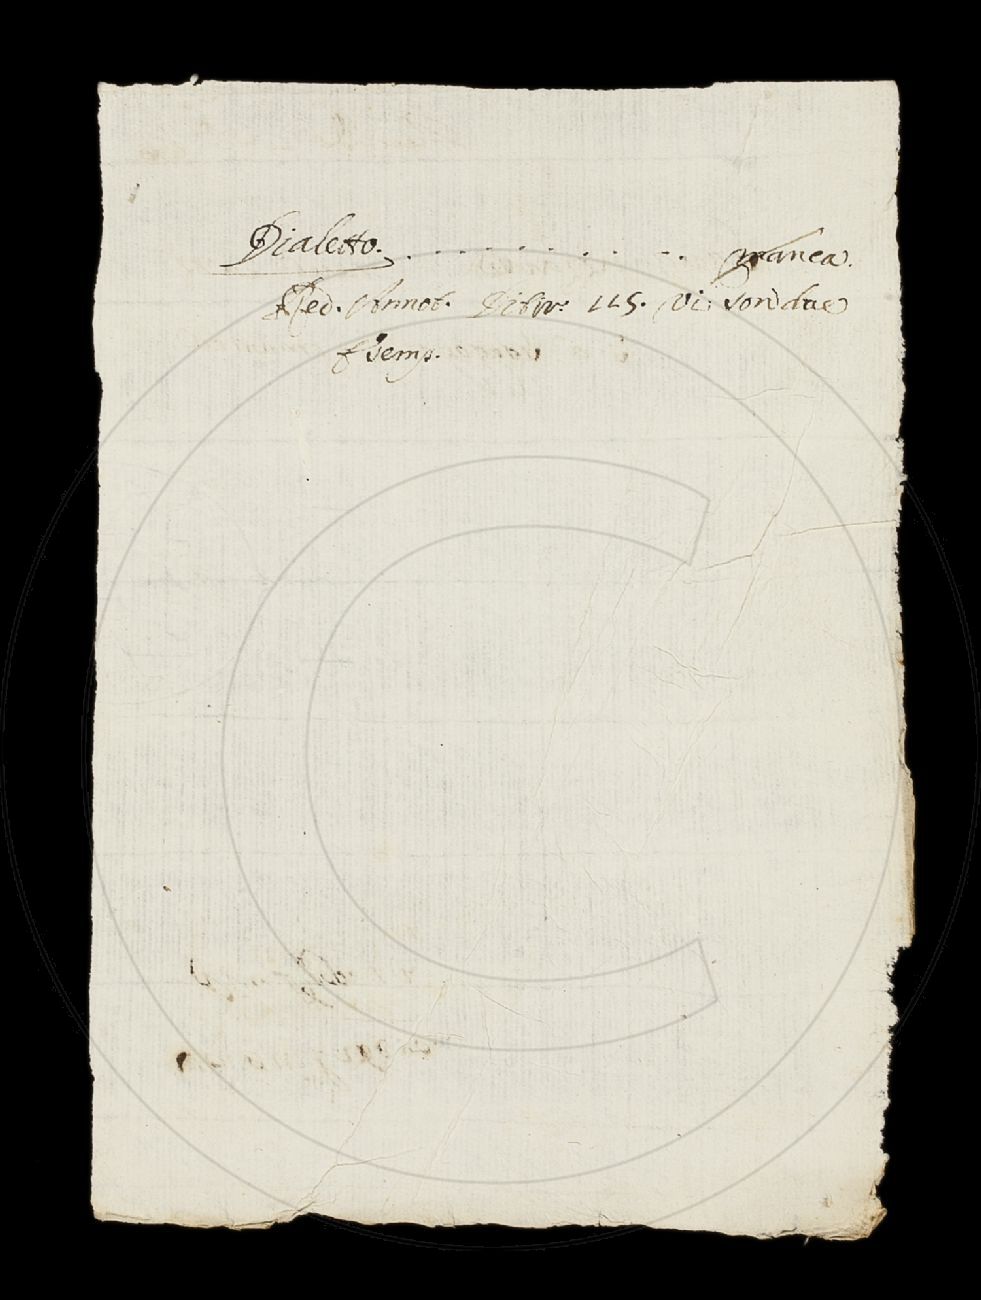 Dialetto. . . . . . . . . . manca.
Red. Annot. Ditir. 115. vi son due
Esemp.